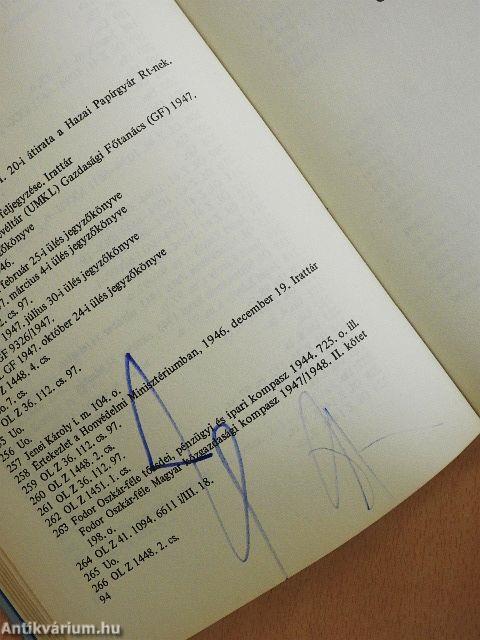 . 20-i átirata a Hazai Papírgyár Rt-nek.
feljegyzése. Irattár
véltár (UMKL) Gazdasági Főtanács (GF) 1947.
zőkönyve
46.
február 25-i ülés jegyzőkönyve
7. március 4-i ülés jegyzőkönyve
2. cs. 97.
1947. július 30-i ülés jegyzőkönyve
GF 9326/1947.
GF 1947. október 24-i ülés jegyzőkönyve
Z 1448. 4. cs.
o. 7. cs.
OL Z 36. 112. cs. 97.
255 Uo.
256 Uo.
257 Jenei Károly i. m. 104. o.
258 Értekezlet a Honvédelmi Minisztériumban, 1946. december 19. Irattár
259 OL Z 36. 112. cs. 97.
260 OL Z 1448. 2. cs.
261 OL Z 36. 112. 97.
262 OL Z 1451. 1. cs.
263 Fodor Oszkár-féle tőzsdei, pénzügyi és ipari Kompasz 1944. 725. o. ill.
Fodor Oszkár-féle Magyar közgazdasági kompasz 1947/1948. II. kötet
198. o.
264 OL Z 41. 1094. 6611 i/III. 18.
265 Uo.
266 OL Z 1448. 2. cs.
94
Antikvárium.hu